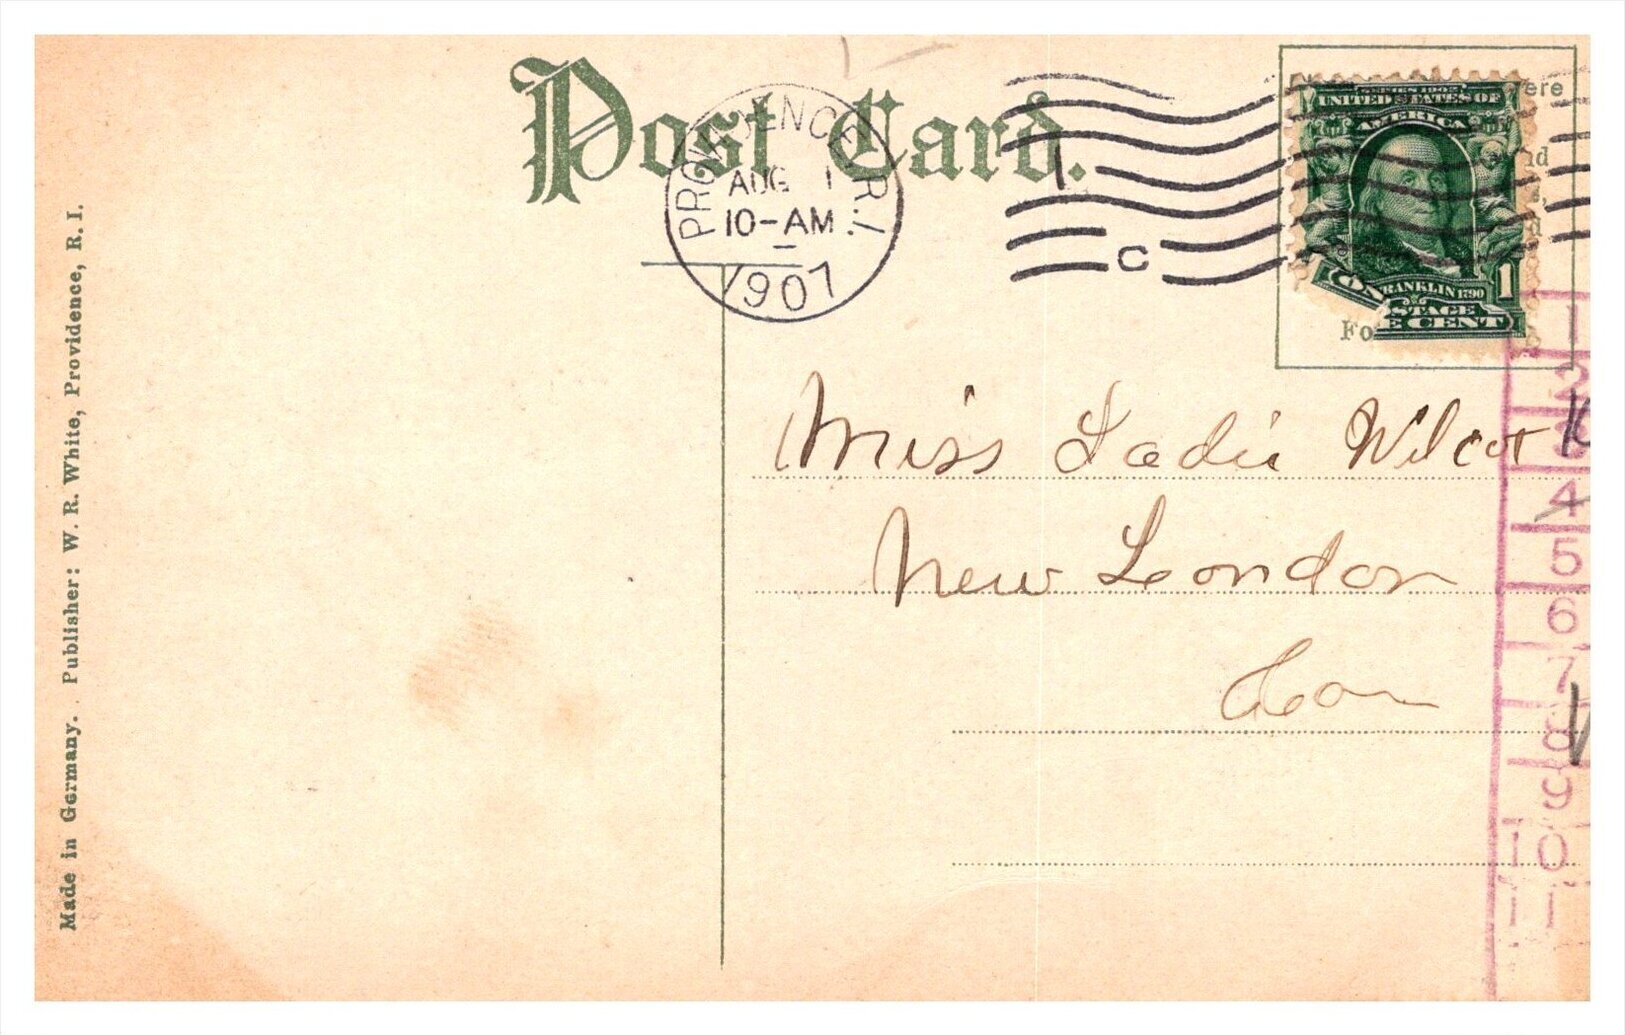 Post Card.
PROVIDENCE, R.I.
AUG 1
10-AM
1907
1
C
SERIES 1902
UNITED STATES OF
AMERICA
FRANKLIN 1790
POSTAGE
ONE CENT
1
ere
nd
d
Fo
Miss Sadie Wilcox
New London
Con
1
2
3
4
5
6
7
8
9
10
11
Made in Germany. Publisher: W. R. White, Providence, R. I.